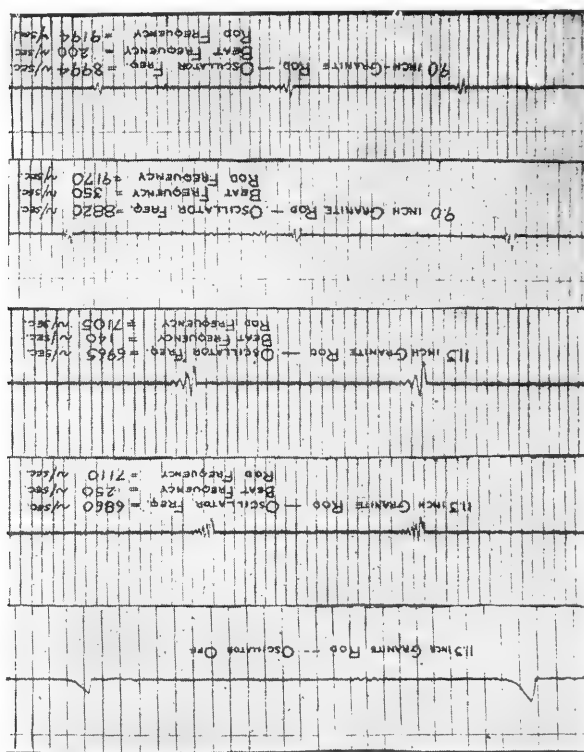 11.3 INCH GRANITE ROD -- OSCILLATOR OFF
11.3 INCH GRANITE ROD — OSCILLATOR FREQ. = 6860 ~/SEC.
BEAT FREQUENCY = 250 ~/SEC
ROD FREQUENCY = 7110 ~/SEC.
11.3 INCH GRANITE ROD — OSCILLATOR FREQ. = 6965 ~/SEC
BEAT FREQUENCY = 140 ~/SEC.
ROD FREQUENCY = 7105 ~/SEC.
9.0 INCH GRANITE ROD — OSCILLATOR FREQ. = 8820 ~/SEC.
BEAT FREQUENCY = 350 ~/SEC
ROD FREQUENCY = 9170 ~/SEC.
9.0 INCH-GRANITE ROD — OSCILLATOR FREQ. = 8994 ~/SEC
BEAT FREQUENCY = 200 ~/SEC
ROD FREQUENCY = 9194 ~/SEC